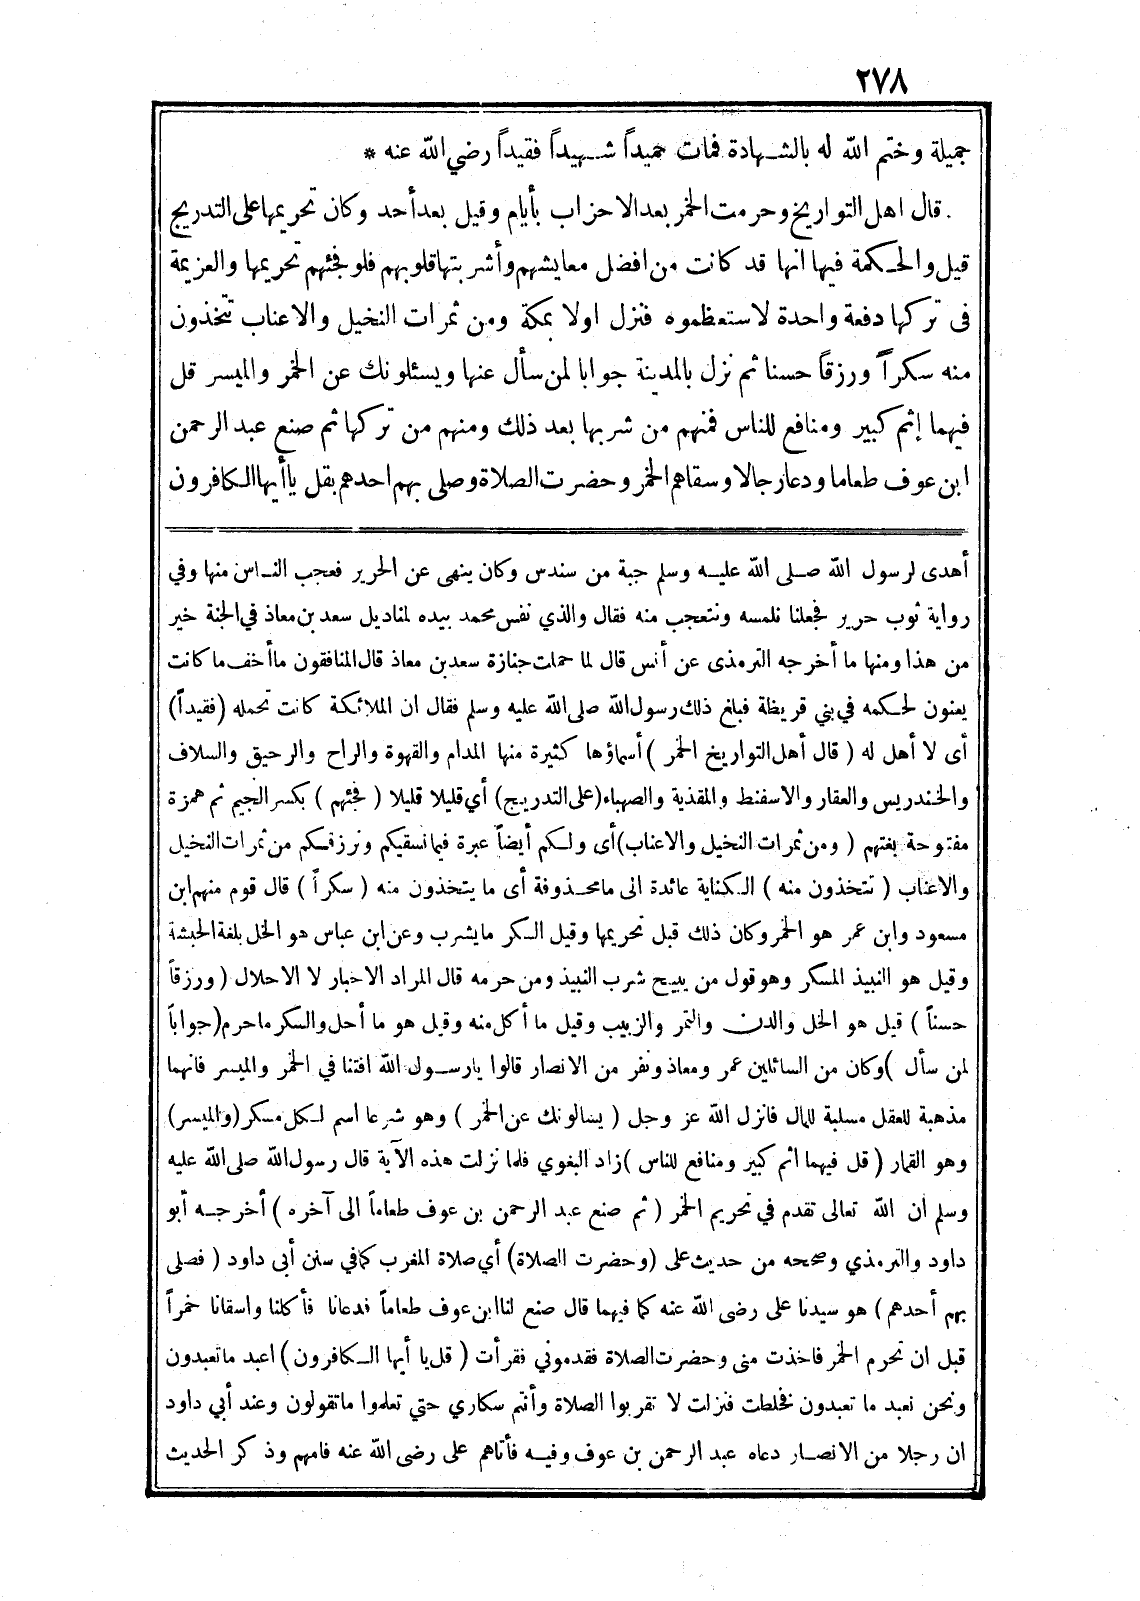 ٢٧٨
جميلة وختم الله له بالشهادة فمات حميداً شهيداً فقيداً رضي الله عنه *
. قال اهل التواريخ وحرمت الخمر بعد الاحزاب بأيام وقيل بعد أحد وكان تحريمها على التدريج
قيل والحكمة فيها انها قد كانت من افضل معايشهم وأشربتها قلوبهم فلو فجئهم تحريمها والعزيمة
فى تركها دفعة واحدة لاستعظموه فنزل اولا بمكة ومن ثمرات النخيل والاعناب تتخذون
منه سكراً ورزقاً حسنا ثم نزل بالمدينة جوابا لمن سأل عنها ويسئلونك عن الخمر والميسر قل
فيهما إثم كبير ومنافع للناس فمنهم من شربها بعد ذلك ومنهم من تركها ثم صنع عبد الرحمن
ابن عوف طعاما ودعا رجالا وسقاهم الخمر وحضرت الصلاة وصلى بهم احدهم بقل ياأيها الكافرون
أهدى لرسول الله صلى الله عليه وسلم جبة من سندس وكان ينهى عن الحرير فعجب الناس منها وفي
رواية ثوب حرير فجعلنا نلمسه ونتعجب منه فقال والذي نفس محمد بيده لمناديل سعد بن معاذ في الجنة خير
من هذا ومنها ما أخرجه الترمذى عن أنس قال لما حملت جنازة سعد بن معاذ قال المنافقون ما أخف ما كانت
يعنون لحكمه في بني قريظة فبلغ ذلك رسول الله صلى الله عليه وسلم فقال ان الملائكة كانت تحمله (فقيداً)
أى لا أهل له ( قال أهل التواريخ الخمر ) أسماؤها كثيرة منها المدام والقهوة والراح والرحيق والسلاف
والخندريس والعقار والاسفنط والمقذية والصهباء (على التدريج) أي قليلا قليلا ( فجئهم ) بكسر الجيم ثم همزة
مفتوحة بغتهم ( ومن ثمرات النخيل والاعناب) أى ولكم أيضاً عبرة فيما نسقيكم ونرزقكم من ثمرات النخيل
والاعناب ( تتخذون منه ) الكناية عائدة الى ما محذوفة أى ما يتخذون منه ( سكراً ) قال قوم منهم ابن
مسعود وابن عمر هو الخمر وكان ذلك قبل تحريمها وقيل السكر ما يشرب وعن ابن عباس هو الخل بلغة الحبشة
وقيل هو النبيذ المسكر وهو قول من يبيح شرب النبيذ ومن حرمه قال المراد الاخبار لا الاحلال ( ورزقاً
حسناً ) قيل هو الخل والدن والتمر والزبيب وقيل ما أكل منه وقيل هو ما أحل والسكر ما حرم (جواباً
لمن سأل ) وكان من السائلين عمر ومعاذ ونفر من الانصار قالوا يارسول الله افتنا في الخمر والميسر فانهما
مذهبة للعقل مسلبة للمال فانزل الله عز وجل ( يسالونك عن الخمر ) وهو شرعا اسم لكل مسكر (والميسر)
وهو القمار ( قل فيهما أثم كبير ومنافع للناس ) زاد البغوي فلما نزلت هذه الآية قال رسول الله صلى الله عليه
وسلم ان الله تعالى تقدم في تحريم الخمر ( ثم صنع عبد الرحمن بن عوف طعاماً الى آخره ) أخرجه أبو
داود والترمذي وصححه من حديث على (وحضرت الصلاة) أي صلاة المغرب كما في سنن أبى داود ( فصلى
بهم أحدهم ) هو سيدنا على رضى الله عنه كما فيهما قال صنع لنا ابن عوف طعاماً فدعانا فأكلنا واسقانا خمراً
قبل ان تحرم الخمر فاخذت منى وحضرت الصلاة فقدموني فقرأت ( قل يا أيها الكافرون ) اعبد ما تعبدون
ونحن نعبد ما تعبدون فخلطت فنزلت لا تقربوا الصلاة وأنتم سكاري حتي تعلموا ما تقولون وعند أبي داود
ان رجلا من الانصار دعاه عبد الرحمن بن عوف وفيه فأتاهم على رضى الله عنه فامهم وذكر الحديث